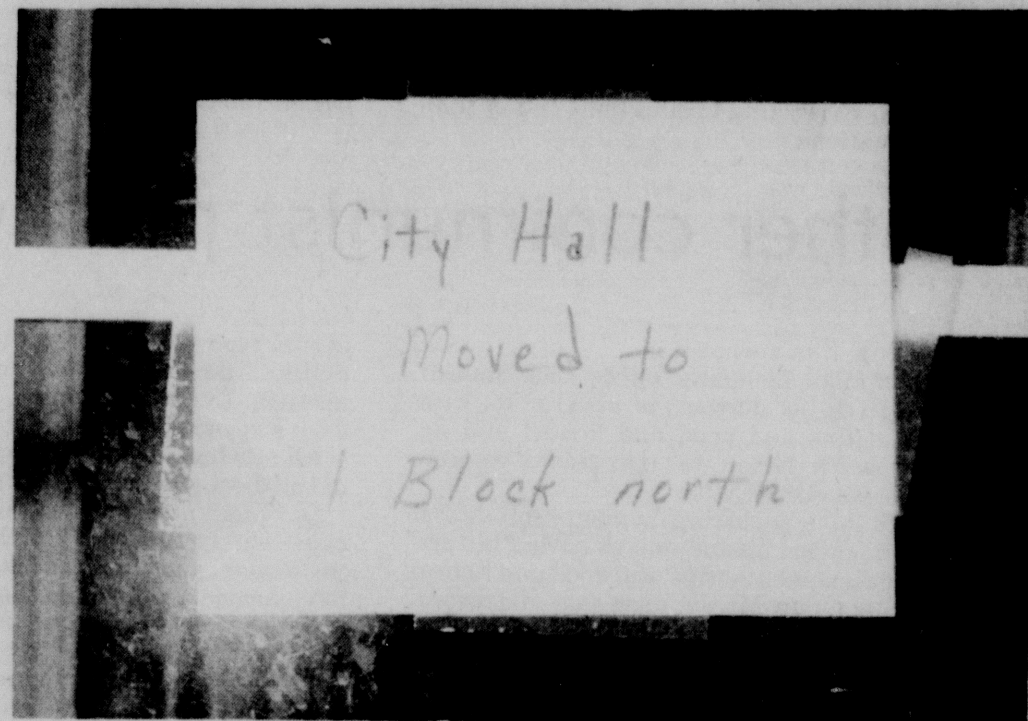 City Hall
Moved to
1 Block north